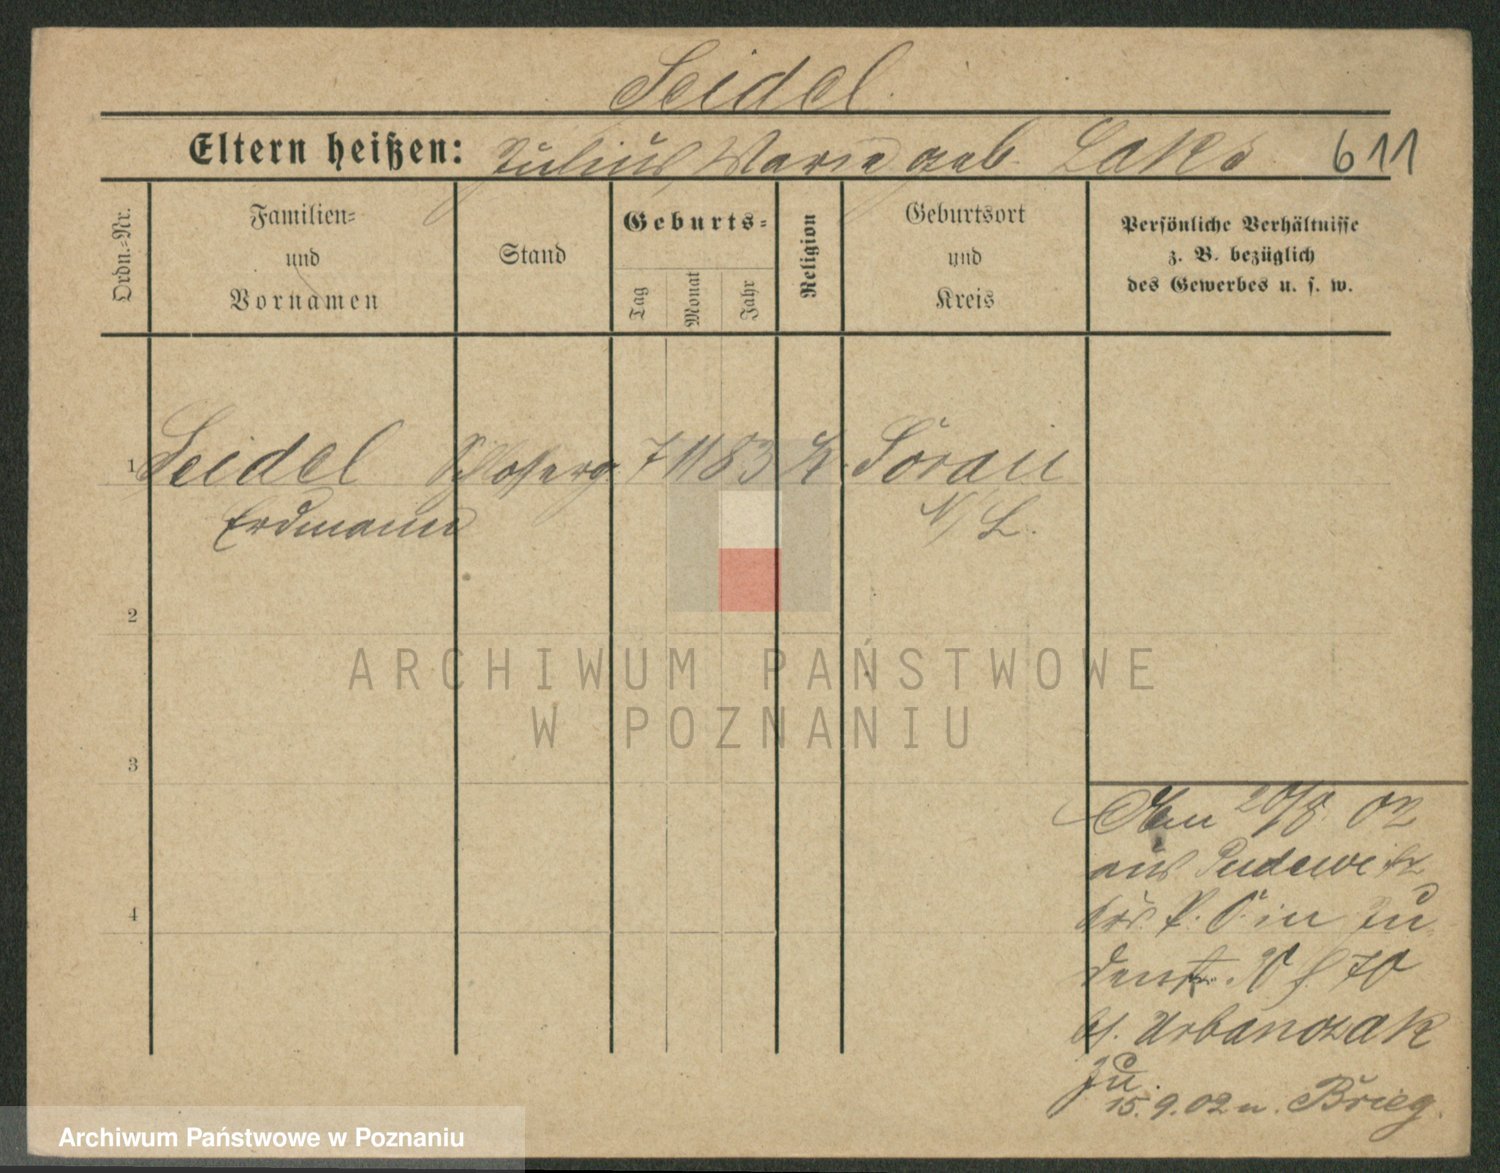 Seidel.
Eltern heißen: Julius, Marie geb. Laks 611
Ordn.-Nr.
Familien-
und
Vornamen
Stand
Geburts-
Tag
Monat
Jahr
Religion
Geburtsort
und
Kreis
Persönliche Verhältnisse
z. B. bezüglich
des Gewerbes u. s. w.
1 Seidel Schlosserg. 7 11 83 k. Sorau
Erdmann N/L.
2
3
4
20/8. 02
aus Pudewitz
in Ju
70
bei Urbanczak
zu.
15. 9. 02 n. Brieg.
ARCHIWUM PAŃSTWOWE
W POZNANIU
Archiwum Państwowe w Poznaniu